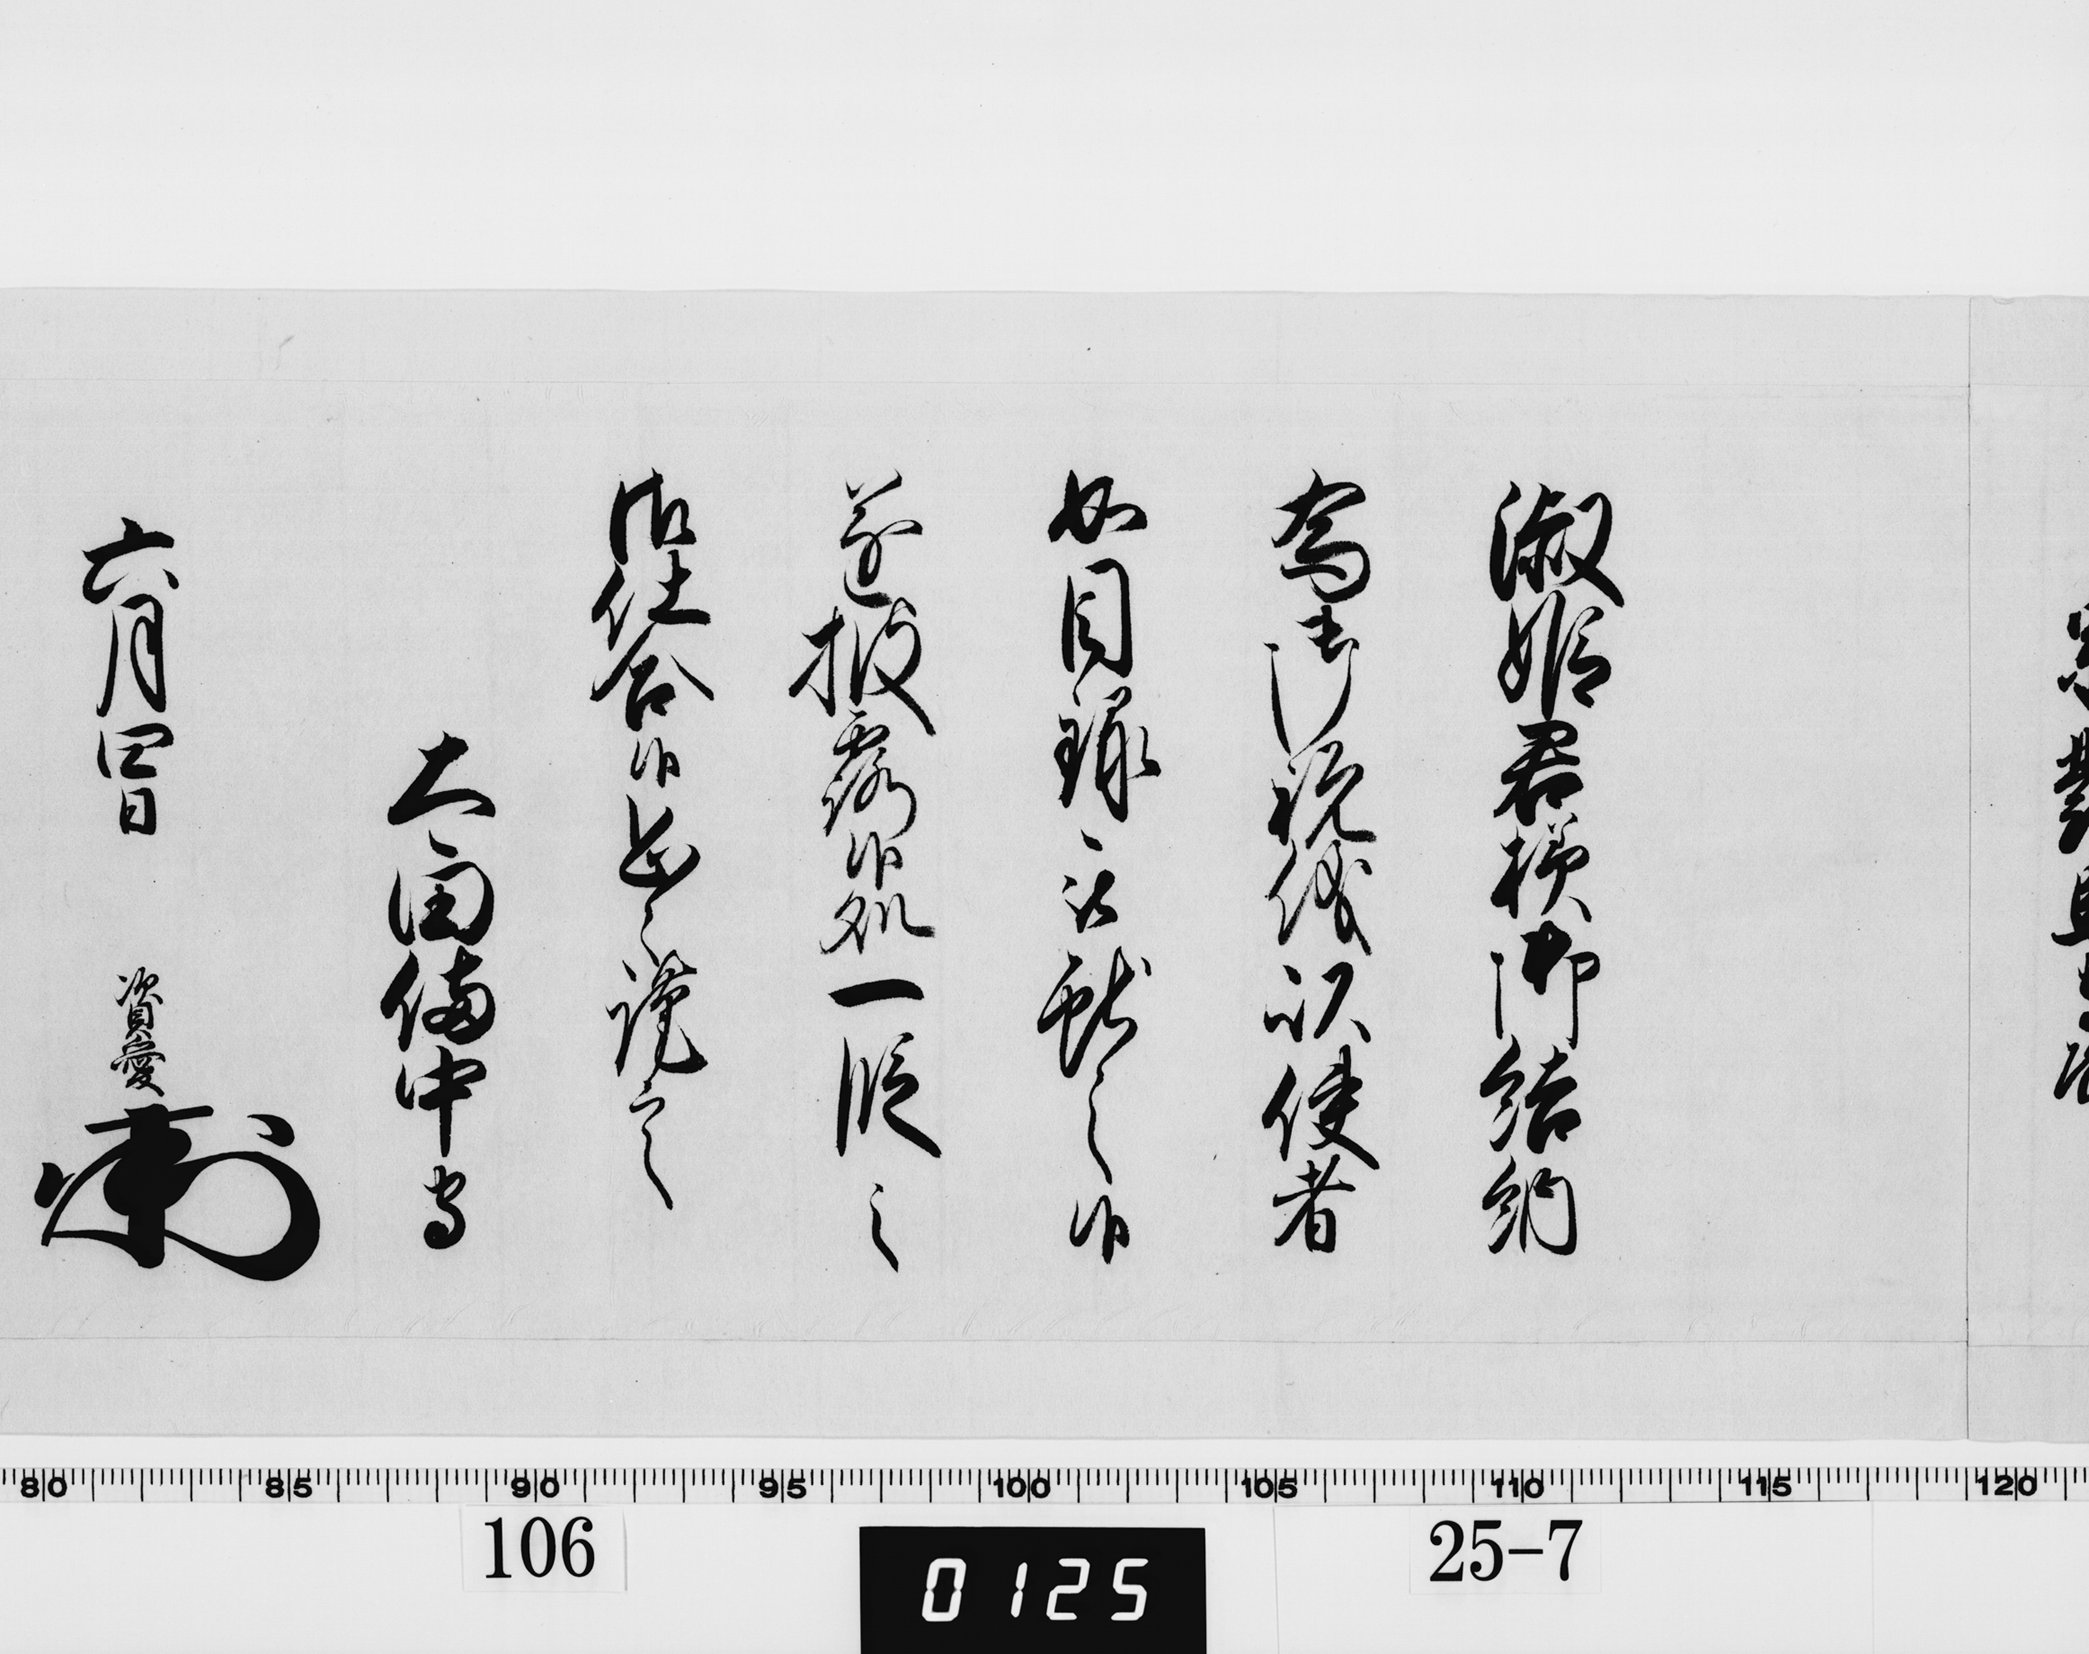 淑姫君様御結納
為御祝儀以使者
如目録被献之候
遂披露候処一段之
御仕合候恐々謹言
太田備中守
六月四日　資愛
80 85 90 95 100 105 110 115 120
106
0125
25-7